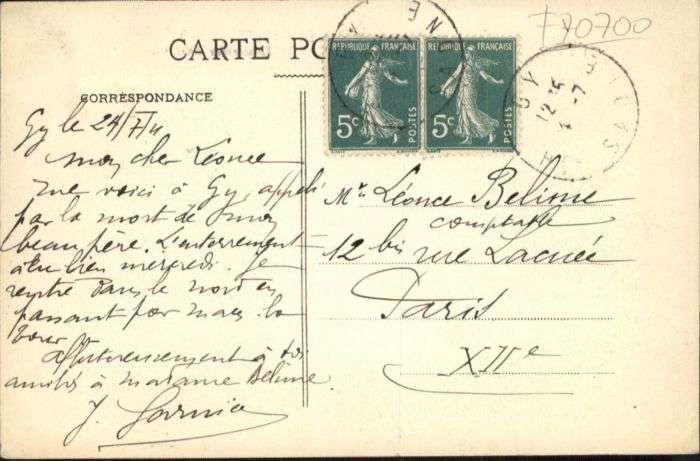 F70700
CARTE PO
REPUBLIQUE FRANÇAISE
5c
POSTES
REPUBLIQUE FRANÇAISE
5c
POSTES
GY
12
CORRESPONDANCE
Gy le 24/7/11
Mon cher Léonce
me voici à Gy, appelé
par la mort de mon
beau père. L'enterrement
a eu lieu mercredi. Je
rentre dans le nord en
passant par
Affectueusement à toi
amitiés à madame Belime
J.
Mr. Léonce Belime
comptable
12 bis rue Lacuée
Paris
XIIe